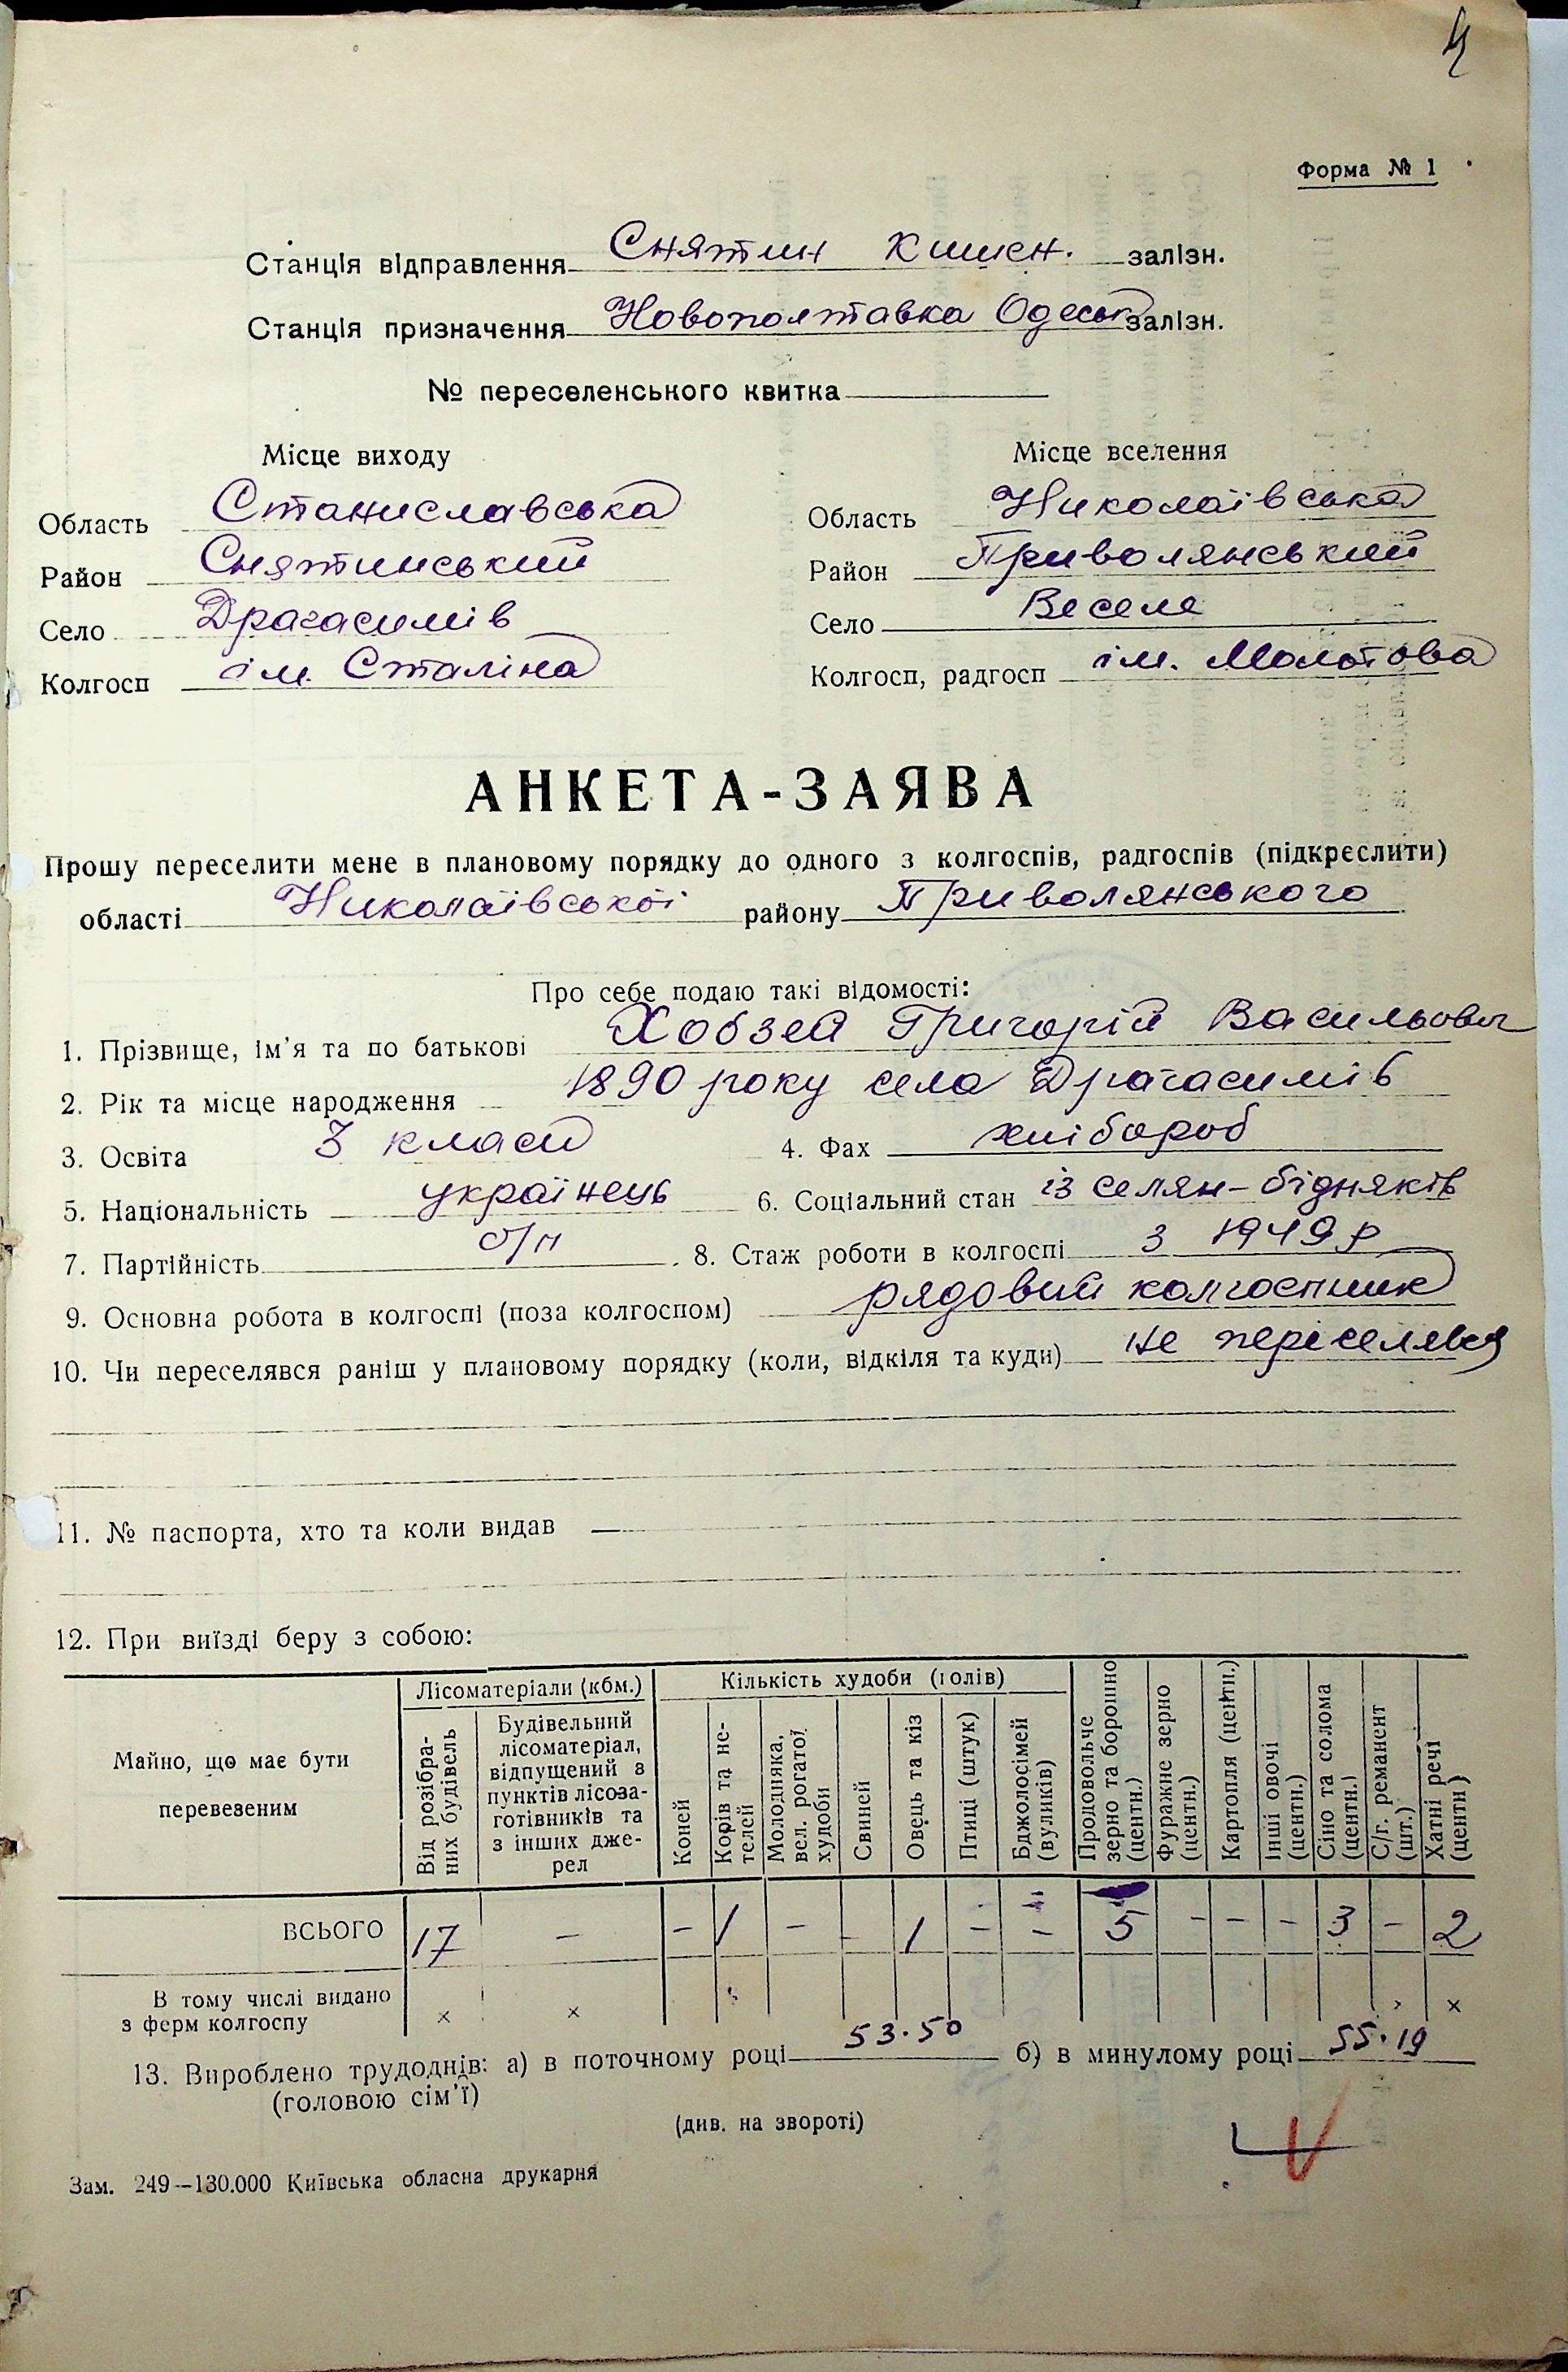 4
Форма № 1
Станція відправлення Снятин Кишен. залізн.
Станція призначення Новополтавка Одеськ залізн.
№ переселенського квитка
Місце виходу Місце вселення
Область Станиславська Область Николаївська
Район Снятинський Район Приволянський
Село Драгасимів Село Веселе
Колгосп ім. Сталіна Колгосп, радгосп ім. Молотова
АНКЕТА-ЗАЯВА
Прошу переселити мене в плановому порядку до одного з колгоспів, радгоспів (підкреслити)
області Николаївської району Приволянського
Про себе подаю такі відомості:
1. Прізвище, ім'я та по батькові Хобзей Григорій Васильович
2. Рік та місце народження 1890 року села Драгасимів
3. Освіта 3 класи 4. Фах хлібороб
5. Національність українець 6. Соціальний стан із селян-бідняків
7. Партійність б/п 8. Стаж роботи в колгоспі з 1949 р
9. Основна робота в колгоспі (поза колгоспом) рядовий колгоспник
10. Чи переселявся раніш у плановому порядку (коли, відкіля та куди) не переселявся
11. № паспорта, хто та коли видав
12. При виїзді беру з собою:
Майно, що має бути перевезеним
Лісоматеріали (кбм.)
Від розібраних будівель
Будівельний лісоматеріал, відпущений з пунктів лісозаготівників та з інших джерел
Кількість худоби (голів)
Коней
Корів та нетелей
Молодняка, вел. рогатої худоби
Свиней
Овець та кіз
Птиці (штук)
Бджолосімей (вуликів)
Продовольче зерно та борошно (центн.)
Фуражне зерно (центн.)
Картопля (центн.)
Інші овочі (центн.)
Сіно та солома (центн.)
С/г. реманент (шт.)
Хатні речі (центн)
ВСЬОГО 17 – – 1 – – 1 – – 5 – – – 3 – 2
В тому числі видано × × ×
з ферм колгоспу
13. Вироблено трудоднів: а) в поточному році 53.50 б) в минулому році 55.19
(головою сім'ї)
(див. на звороті)
Зам. 249—130.000 Київська обласна друкарня